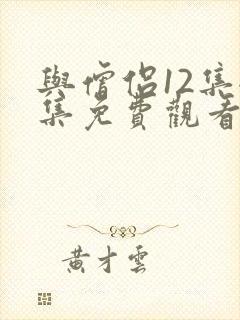 與僧侶12集
集免費觀看
黄才雲